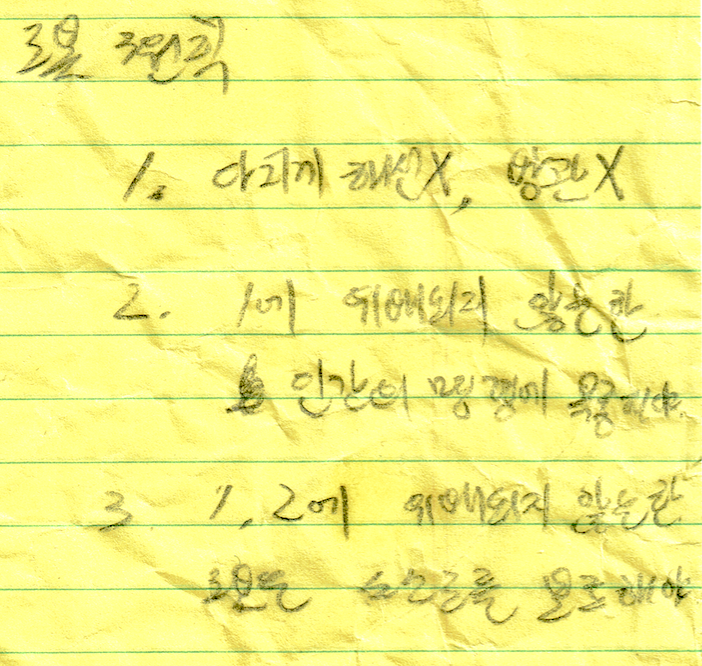 로봇 3원칙
1. 다치게 해선X, 방관X
2. 1에 위배되지 않는한
인간의 명령에 복종해야
3 1, 2에 위배되지 않는한
로봇은 스스로를 보호해야